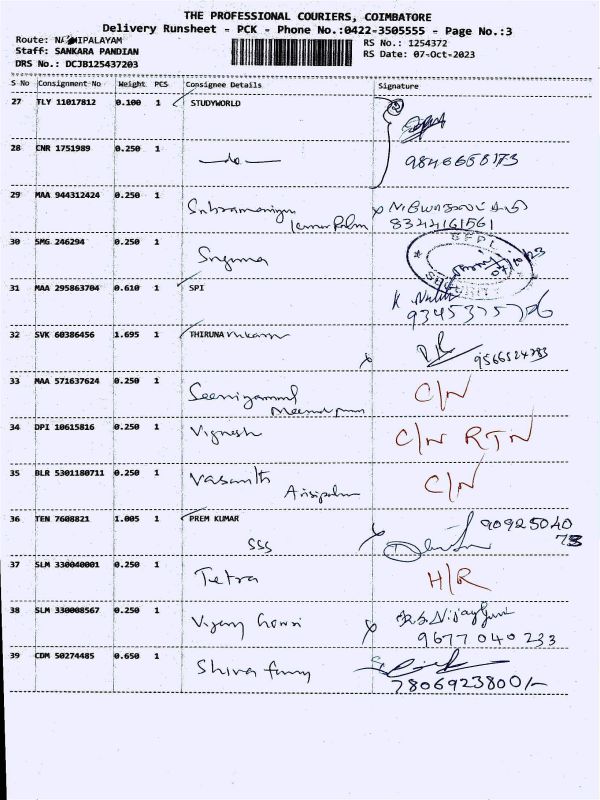 THE PROFESSIONAL COURIERS, COIMBATORE
Delivery Runsheet - PCK - Phone No.:0422-3505555 - Page No.:3
Route: IPALAYAM
RS No.: 1254372
Staff: SANKARA PANDIAN
RS Date: 07-Oct-2023
DRS No.: DCJB125437203
S No Consignment No Weight PCS Consignee Details Signature
27 TLY 11017812 0.100 1 STUDYWORLD
28 CNR 1751989 0.250 1 —do—
9846658173
29 MAA 944312424 0.250 1
8324161561
30 SMG 246294 0.250 1 Suguna
SFPL
SECURITY
31 MAA 295863704 0.610 1 SPI
K.
9345375706
32 SVK 60386456 1.695 1 THIRUNA
9566524783
33 MAA 571637624 0.250 1 C/N
34 DPI 10615816 0.250 1 Vignesh C/N RTN
35 BLR 5301180711 0.250 1 Vasanth C/N
Arisipalam
36 TEN 7608821 1.005 1 PREM KUMAR 90925040
SSS 73
37 SLM 330040001 0.250 1 Tetra H/R
38 SLM 330008567 0.250 1 Vijay Gowri
9677040233
39 CDM 50274485 0.650 1 Shiva
7806923800/-